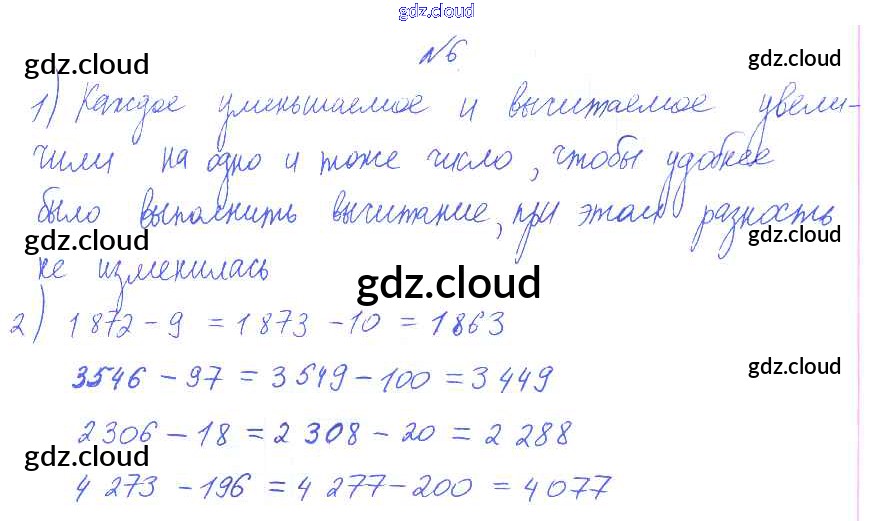 gdz.cloud
№6
gdz.cloud gdz.cloud
1) Каждое уменьшаемое и вычитаемое увели-
чили на одно и тоже число, чтобы удобнее
gdz.cloud gdz.cloud
было выполнить вычитание, при этом разность
gdz.cloud gdz.cloud
не изменилась
gdz.cloud
2) 1872 - 9 = 1873 - 10 = 1863
gdz.cloud
3546 - 97 = 3549 - 100 = 3449
2306 - 18 = 2308 - 20 = 2288
gdz.cloud gdz.cloud
4273 - 196 = 4277 - 200 = 4077